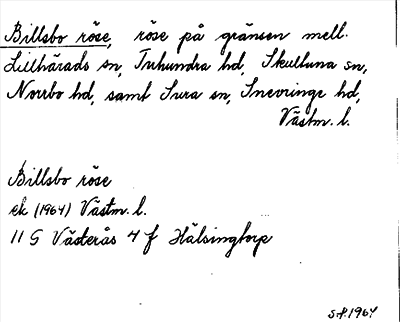 Billsbo röse, röse på gränsen mell.
Lillhärads sn, Tuhundra hd, Skultuna sn,
Norrbo hd, samt Sura sn, Snevringe hd,
Västm. l.
Billsbo röse
ek (1964) Västm. l.
11 G Västerås 4 f Hälsingtorp
S.F. 1964